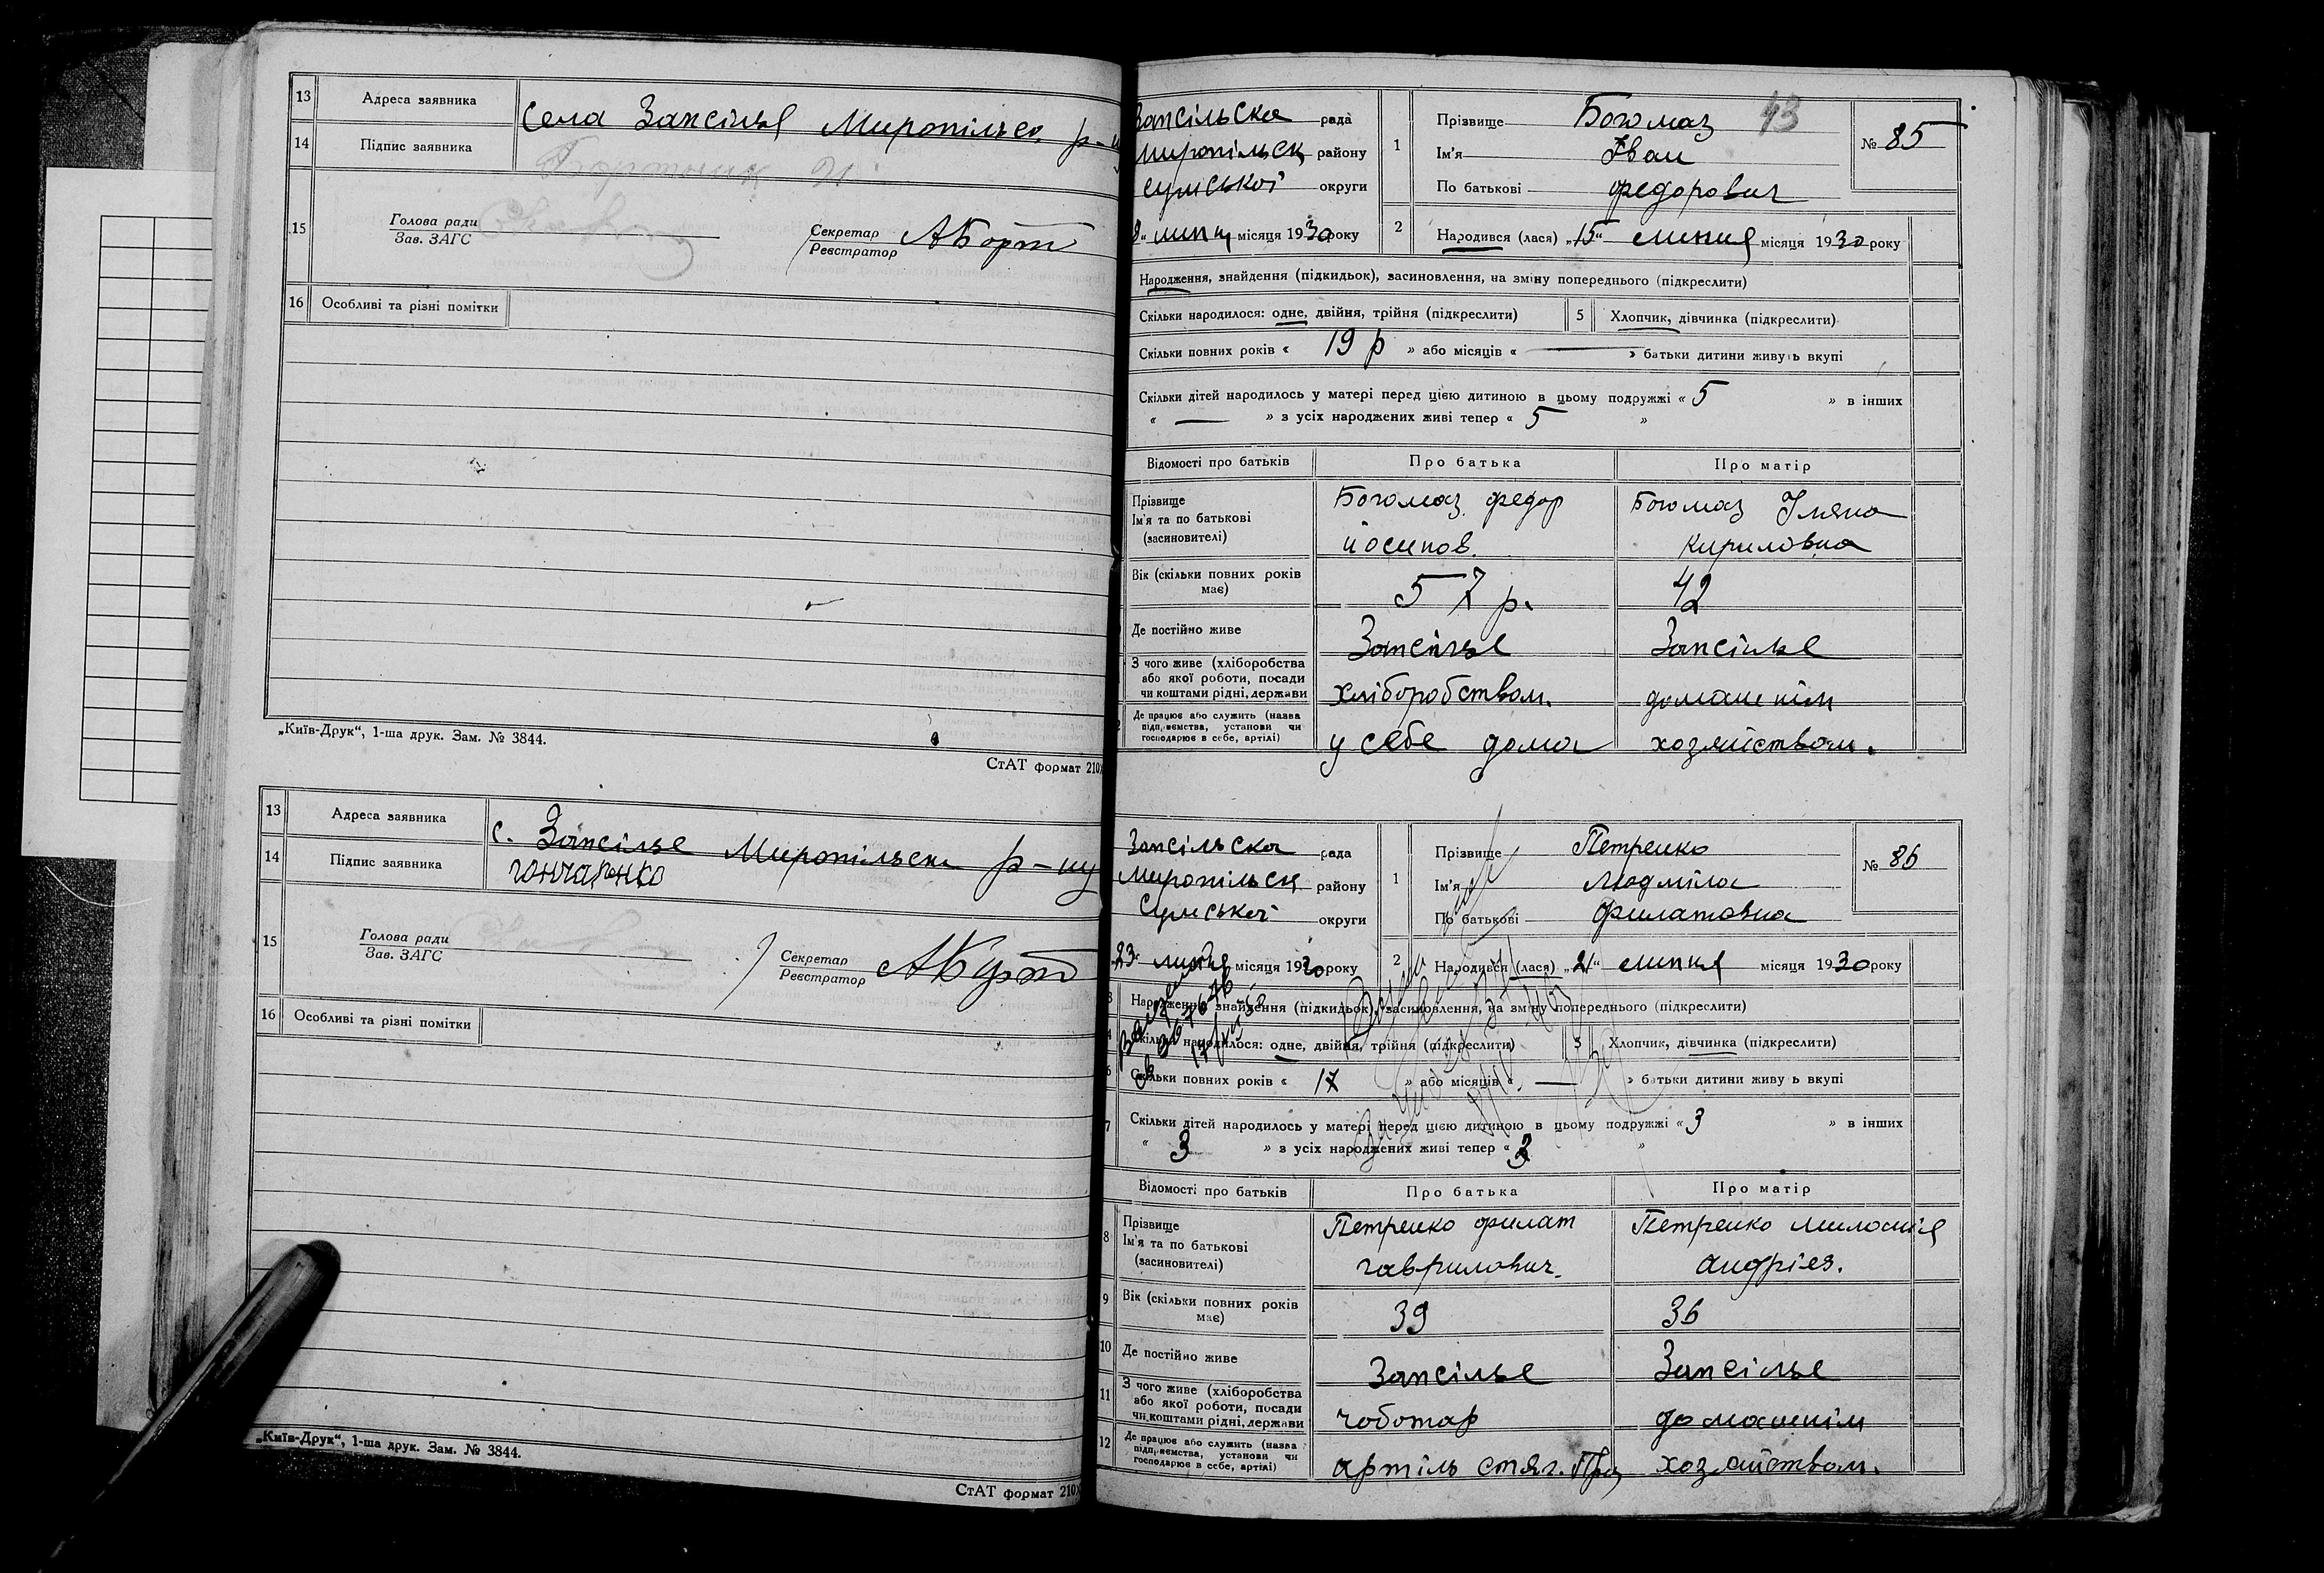 13 Адреса заявника Села Запсільє Миропільск. р-н
14 Підпис заявника
15 Голова ради
Зав. ЗАГС
Секретар
Реєстратор АБорт
16 Особливі та різні помітки
„Київ-Друк“, 1-ша друк. Зам. № 3844.
СтАТ формат 210
13 Адреса заявника с. Запсільє Миропільськ р-ну
14 Підпис заявника гончаренко
15 Голова ради
Зав. ЗАГС
Секретар
Реєстратор
16 Особливі та різні помітки
„Київ-Друк“, 1-ша друк. Зам. № 3844.
СтАТ формат 210
43
Запсільска рада
Миропільск району
сумської округи
липц місяця 1930 року
1 Прізвище Богомаз
Ім'я Іван
По батькові федорович
№ 85
2 Народився (лася) „15“ липня місяця 1930 року
Народження, знайдення (підкидьок), засиновлення, на зміну попереднього (підкреслити)
Скільки народилося: одне, двійня, трійня (підкреслити) 5 Хлопчик, дівчинка (підкреслити)
Скільки повних років « 19 р » або місяців « — » батьки дитини живуть вкупі
Скільки дітей народилось у матері перед цією дитиною в цьому подружжі « 5 » в інших
« — » з усіх народжених живі тепер « 5 »
Відомості про батьків Про батька Про матір
Прізвище Богомаз федор Богомаз Уляна
Ім'я та по батькові
(засиновителі) йосипов. кириловна
Вік (скільки повних років
має) 57 р. 42
Де постійно живе Запсільє Запсільє
З чого живе (хліборобства
або якої роботи, посади
чи коштами рідні, держави хліборобством. домашнім
Де працює або служить (назва
підприємства, установи чи
господарює в себе, артілі) у себе дома хозяйством.
Запсільска рада
Миропільск району
Сумської округи
23 липня місяця 1930 року
1 Прізвище Петренко
Ім'я Людміла
По батькові филатовна
№ 86
2 Народився (лася) „21“ липня місяця 1930 року
3 Народження, знайдення (підкидьок), засиновлення, на зміну попереднього (підкреслити)
4 Скільки народилося: одне, двійня, трійня (підкреслити) 5 Хлопчик, дівчинка (підкреслити)
6 Скільки повних років « 17 » або місяців « — » батьки дитини живуть вкупі
7 Скільки дітей народилось у матері перед цією дитиною в цьому подружжі « 3 » в інших
« 3 » з усіх народжених живі тепер « 3 »
Відомості про батьків Про батька Про матір
8 Прізвище Петренко филат Петренко
Ім'я та по батькові
(засиновителі) гаврилович. андрієв.
9 Вік (скільки повних років
має) 39 36
10 Де постійно живе Запсільє Запсільє
11 З чого живе (хліборобства
або якої роботи, посади
чи коштами рідні, держави чоботар домашнім
12 Де працює або служить (назва
підприємства, установи чи
господарює в себе, артілі) артіль хозяйством.